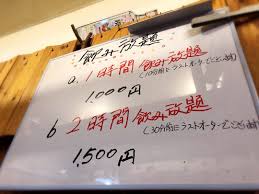 飲み放題
a. 1時間飲み放題
(10分前にラストオーダーでございます)
1,000円
b. 2時間飲み放題
(30分前にラストオーダーでございます)
1,500円